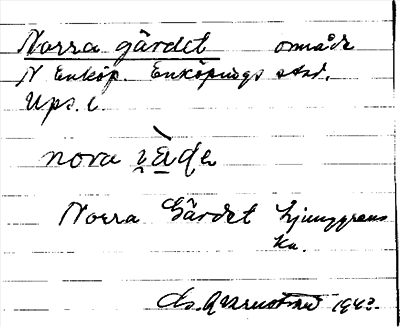 Norra gärdet område
N Enköp. Enköpings stad.
Ups. l.
nora
Norra Gärdet Ljunggrens
ka.
1943.